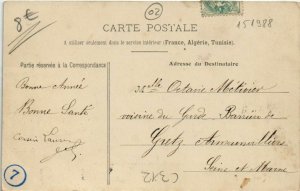 8€
02
151988
CARTE POSTALE
A utiliser seulement dans le service intérieur (France, Algérie, Tunisie).
Partie réservée à la Correspondance
Adresse du Destinataire
Bonne Année
Bonne Santé
Melle Octavie Métivier
voisine du Garde Barrière de
Gretz Armainvilliers
Seine et Marne
7
C312